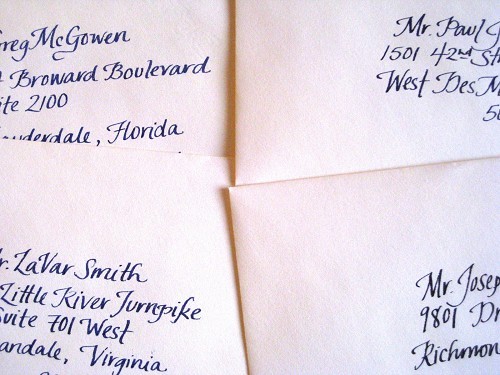 reg McGowen
Broward Boulevard
ite 2100
auderdale, Florida
Mr. Paul
1501 42nd St
West Des M
5
r. LaVar Smith
Little River Turnpike
Suite 701 West
andale, Virginia
Mr. Josep
9801 Dr
Richmon